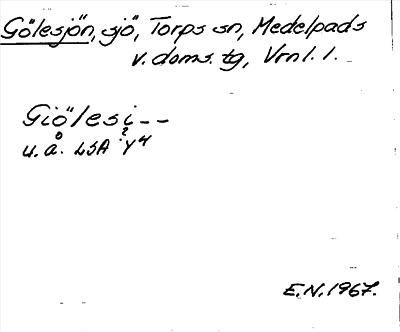 Gölesjön, sjö, Torps sn, Medelpads
v. doms. tg, Vrnl. l.
Giölesi--
?
u. å. LSA Y4
E.N. 1967.